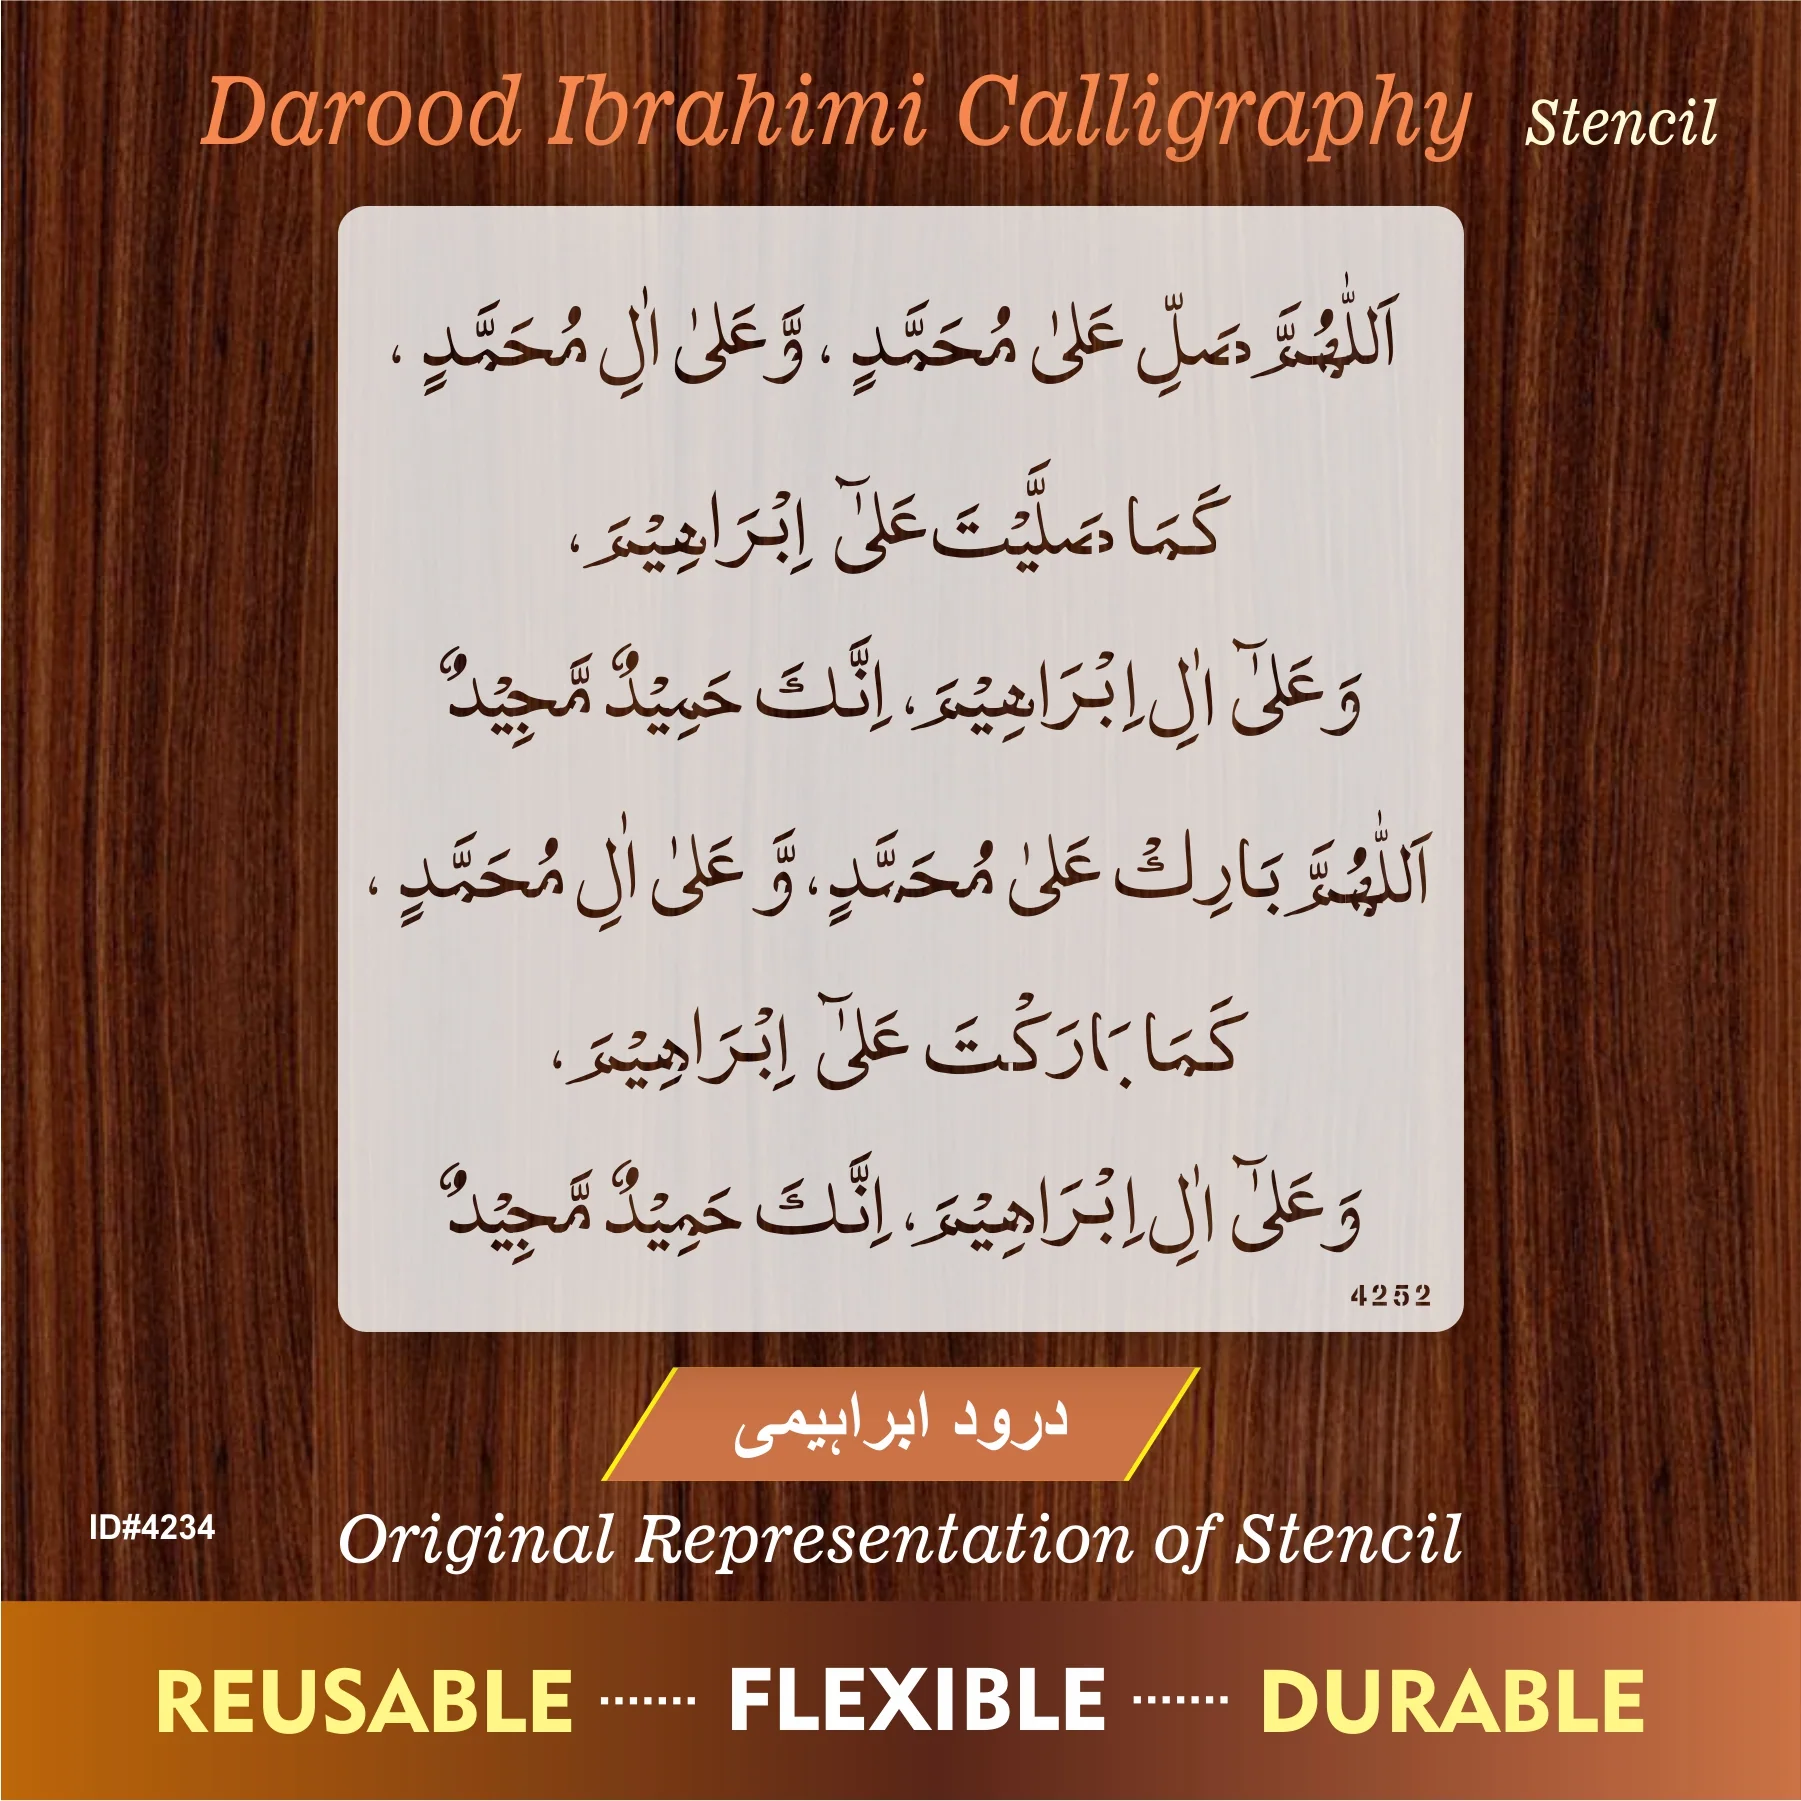 Darood Ibrahimi Calligraphy Stencil
اَللّٰهُمَّ صَلِّ عَلىٰ مُحَمَّدٍ ، وَّعَلىٰ اٰلِ مُحَمَّدٍ ،
كَمَا صَلَّيْتَ عَلىٰٓ اِبْرَاهِيْمَ ،
وَعَلىٰٓ اٰلِ اِبْرَاهِيْمَ ، اِنَّكَ حَمِيْدٌ مَّجِيْدٌ
اَللّٰهُمَّ بَارِكْ عَلىٰ مُحَمَّدٍ ، وَّ عَلىٰ اٰلِ مُحَمَّدٍ ،
كَمَا بَارَكْتَ عَلىٰٓ اِبْرَاهِيْمَ ،
وَعَلىٰٓ اٰلِ اِبْرَاهِيْمَ ، اِنَّكَ حَمِيْدٌ مَّجِيْدٌ
4252
درود ابراہیمی
ID#4234
Original Representation of Stencil
REUSABLE ....... FLEXIBLE ....... DURABLE